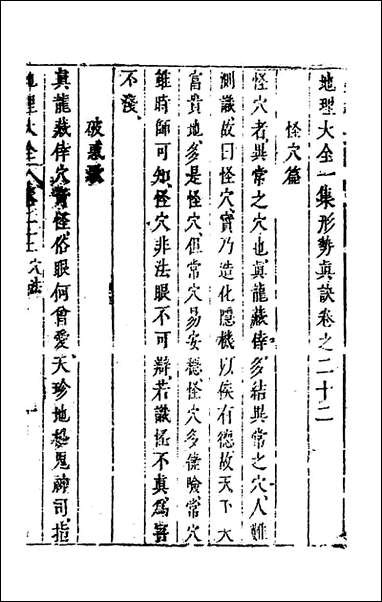 地理大全一集形勢真訣卷之二十二
怪穴篇
怪穴者異常之穴也真龍藏倖多結異常之穴人難
測識故曰怪穴實乃造化隱機以俟有德故天下大
富貴地多是怪穴但常穴易安穩怪穴多像險常穴
雖時師可知怪穴非法眼不可辯若識怪不真為害
不淺
破惑歌
真龍藏倖穴奇怪俗眼何曾愛天珍地秘鬼神司指
地理大全 卷二十二 穴法